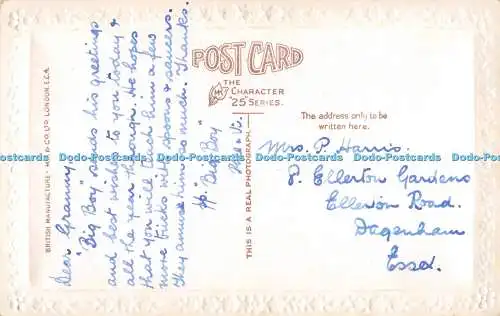 POST CARD
THE
CHARACTER
"25" SERIES.
The address only to be
written here.
BRITISH MANUFACTURE
CO. LTD. LONDON. E.C.4.
THIS IS A REAL PHOTOGRAPH
Dear Granny,
"Big Boy" sends his greetings
and best wishes to you today &
all the year through. He hopes
that you will teach him a few
more tricks with spoons & saucers.
They amuse him so much. Thanks.
pp. "Big Boy"
Mrs. P. Harris.
P. Ellerton Gardens
Ellerton Road.
Dagenham
Essex.
Dodo-Postcards Dodo-Postcards Dodo-Postcards Dodo-Postcards Dodo-Postcards